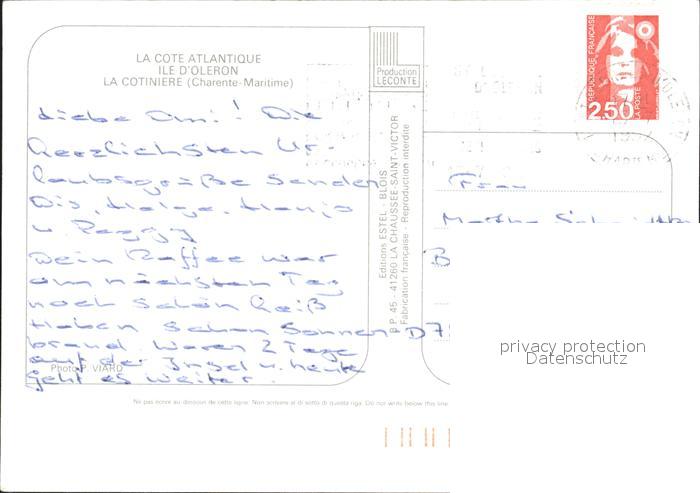 LA COTE ATLANTIQUE
ILE D'OLERON
LA COTINIERE (Charente-Maritime)
Production
LECONTE
REPUBLIQUE FRANÇAISE
2,50
LA POSTE
Liebe Omi! Die
herzlichsten Ur-
laubsgrüße senden
Dir, Helga, Hanjo
u. Peggy
Dein Kaffee war
am nächsten Tag
noch schön heiß
Haben schon Sonnen
brand. Waren 2 Tage
auf der Insel u. heute
geht es weiter.
Photo P. VIARD
Editions ESTEL - BLOIS
B.P. 45 - 41260 LA CHAUSSEE-SAINT-VICTOR
Fabrication française - Reproduction interdite
Frau
D 7
privacy protection
Datenschutz
Ne pas écrire au dessous de cette ligne. Non scrivere al di sotto di questa riga. Do not write below this line